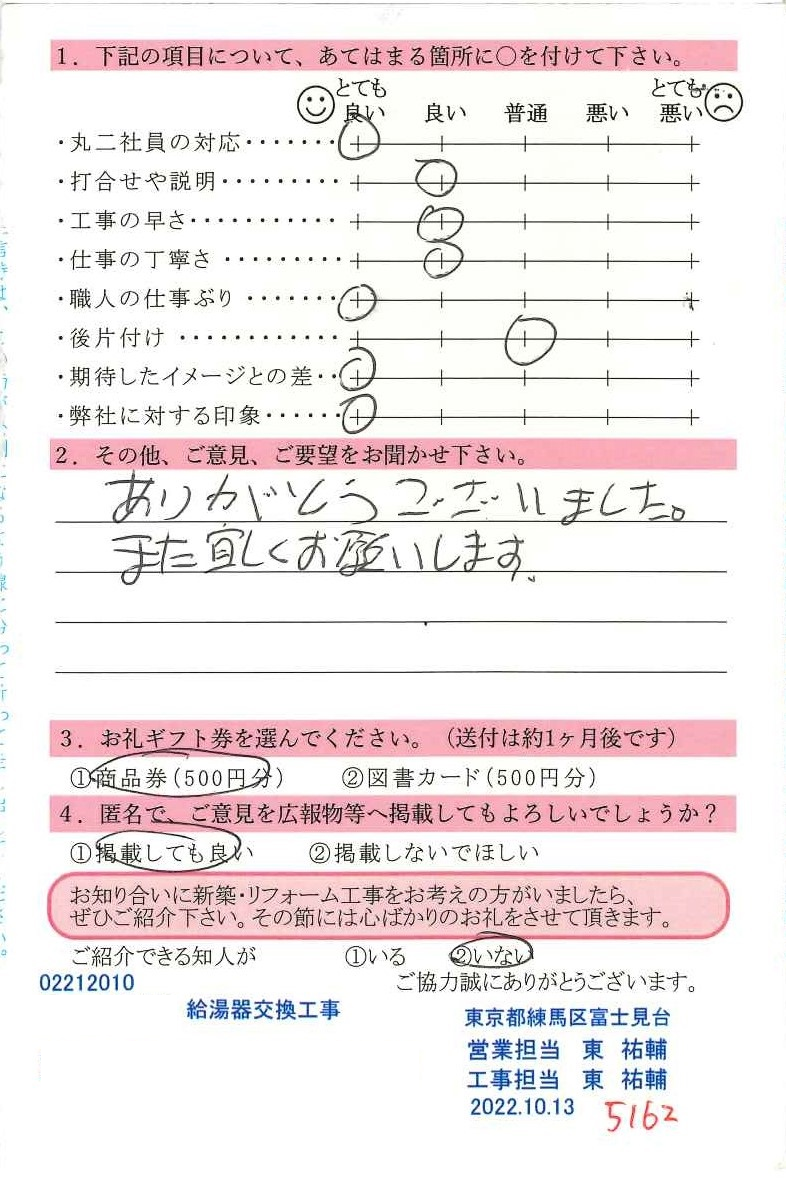 1．下記の項目について、あてはまる箇所に○を付けて下さい。
とても良い 良い 普通 悪い とても悪い
・丸二社員の対応・・・・・・・
・打合せや説明・・・・・・・・・
・工事の早さ・・・・・・・・・・・
・仕事の丁寧さ・・・・・・・・・
・職人の仕事ぶり・・・・・・・
・後片付け・・・・・・・・・・・・
・期待したイメージとの差・・
・弊社に対する印象・・・・・・
2．その他、ご意見、ご要望をお聞かせ下さい。
ありがとうございました。
また宜しくお願いします。
3．お礼ギフト券を選んでください。（送付は約1ヶ月後です）
①商品券（500円分） ②図書カード（500円分）
4．匿名で、ご意見を広報物等へ掲載してもよろしいでしょうか？
①掲載しても良い ②掲載しないでほしい
お知り合いに新築・リフォーム工事をお考えの方がいましたら、
ぜひご紹介下さい。その節には心ばかりのお礼をさせて頂きます。
ご紹介できる知人が ①いる ②いない
02212010 ご協力誠にありがとうございます。
給湯器交換工事 東京都練馬区富士見台
営業担当 東 祐輔
工事担当 東 祐輔
2022.10.13 5162